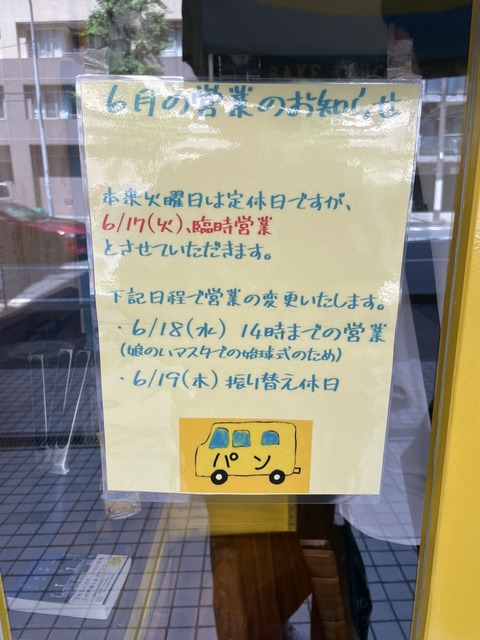 6月の営業のお知らせ
本来火曜日は定休日ですが、
6/17(火)、臨時営業
とさせていただきます。
下記日程で営業の変更いたします。
・6/18(水) 14時までの営業
(娘のいマスタでの始球式のため)
・6/19(木) 振り替え休日
パン